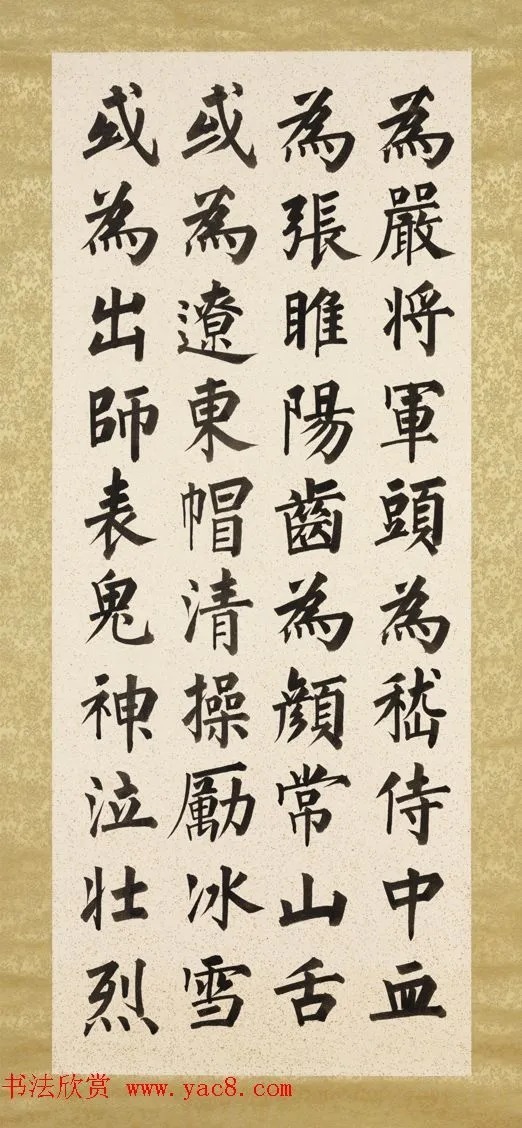 為嚴将軍頭為嵇侍中血
為張睢陽齒為顔常山舌
或為遼東帽清操厲冰雪
或為出師表鬼神泣壮烈
书法欣赏 www.yac8.com